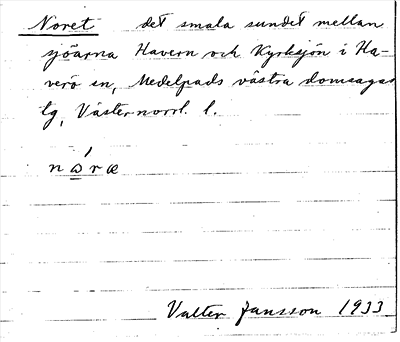 Noret det smala sundet mellan
sjöarna Havern och Kyrksjön i Ha-
verö sn, Medelpads västra domsagas
tg, Västernorrl. l.
Valter Jansson 1933